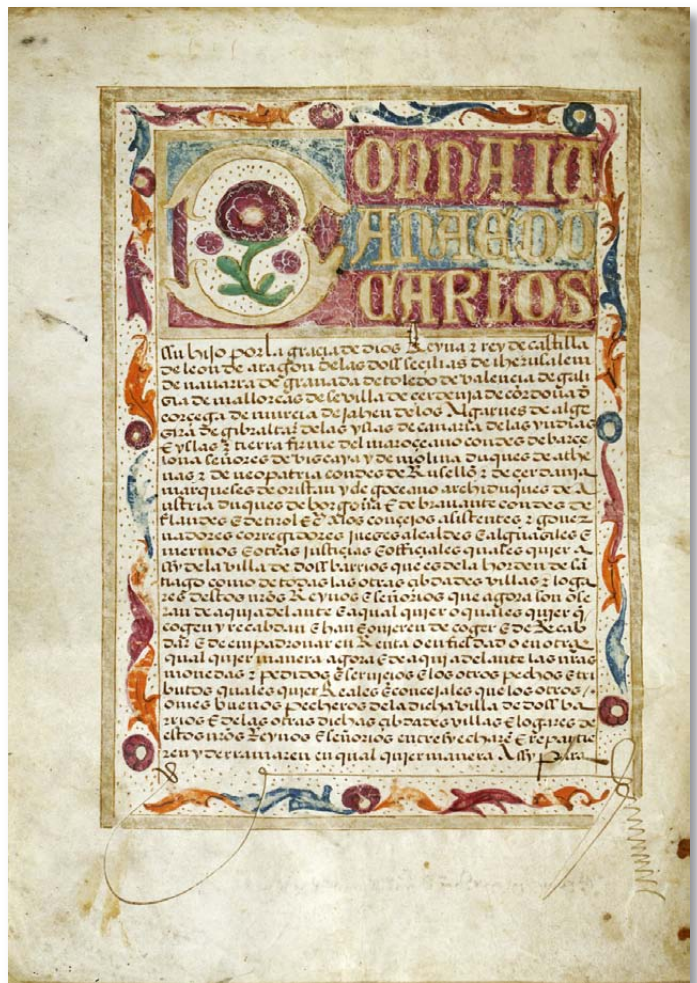 DONNA IU
ANA E DO
CARLOS
ssu hijo por la gracia de dios Reyna ⁊ rey de castilla
de leon de aragon de las doss secilias de iherusalem
de nauarra de granada de toledo de valencia de gali
sia de mallorcas de seuilla de cerdenia de cordoua d̃
corçega de murcia de jahen de los Algarues de alge
sira de gibraltar de las yslas de canaria de las yndias
E yslas ⁊ tierra firme del mar oçeano condes de barçe
lona señores de viscaya y de molina duques de athe
nas ⁊ de neopatria condes de Rusellõ ⁊ de çerdanja
marqueses de oristan y de goçeano archiduques de A
ustria duques de borgoña E de brauante condes de
flandes E de tirol Ec̃ A los conçejos asistentes ⁊ gouer
nadores corregidores jueses alcaldes E alguasiles E
merinos E otras justiçias E offiçiales quales quier A
ssy de la villa de doss barrios que es de la horden de sã
tiago como de todas las otras çibdades villas ⁊ loga
res destos nr̃os Reynos E señorios que agora son o se
ran de aqui adelante E a qual quier o quales quier q̃
cogen y recabdan E han E ouieren de coger E de Recab
dar E de empadronar en Renta o en fieldad o en otra
qual quier manera agora E de aqui adelante las nr̃as
monedas ⁊ pedidos E seruiçios E los otros pechos E tri
butos quales quier Reales E conçejales que los otros
omes buenos pecheros de la dicha villa de doss ba
rrios E de las otras dichas çibdades villas E logares de
estos nr̃os Reynos E señorios entre sy echarẽ E repartie
ren y derramaren en qual quier manera Assy para